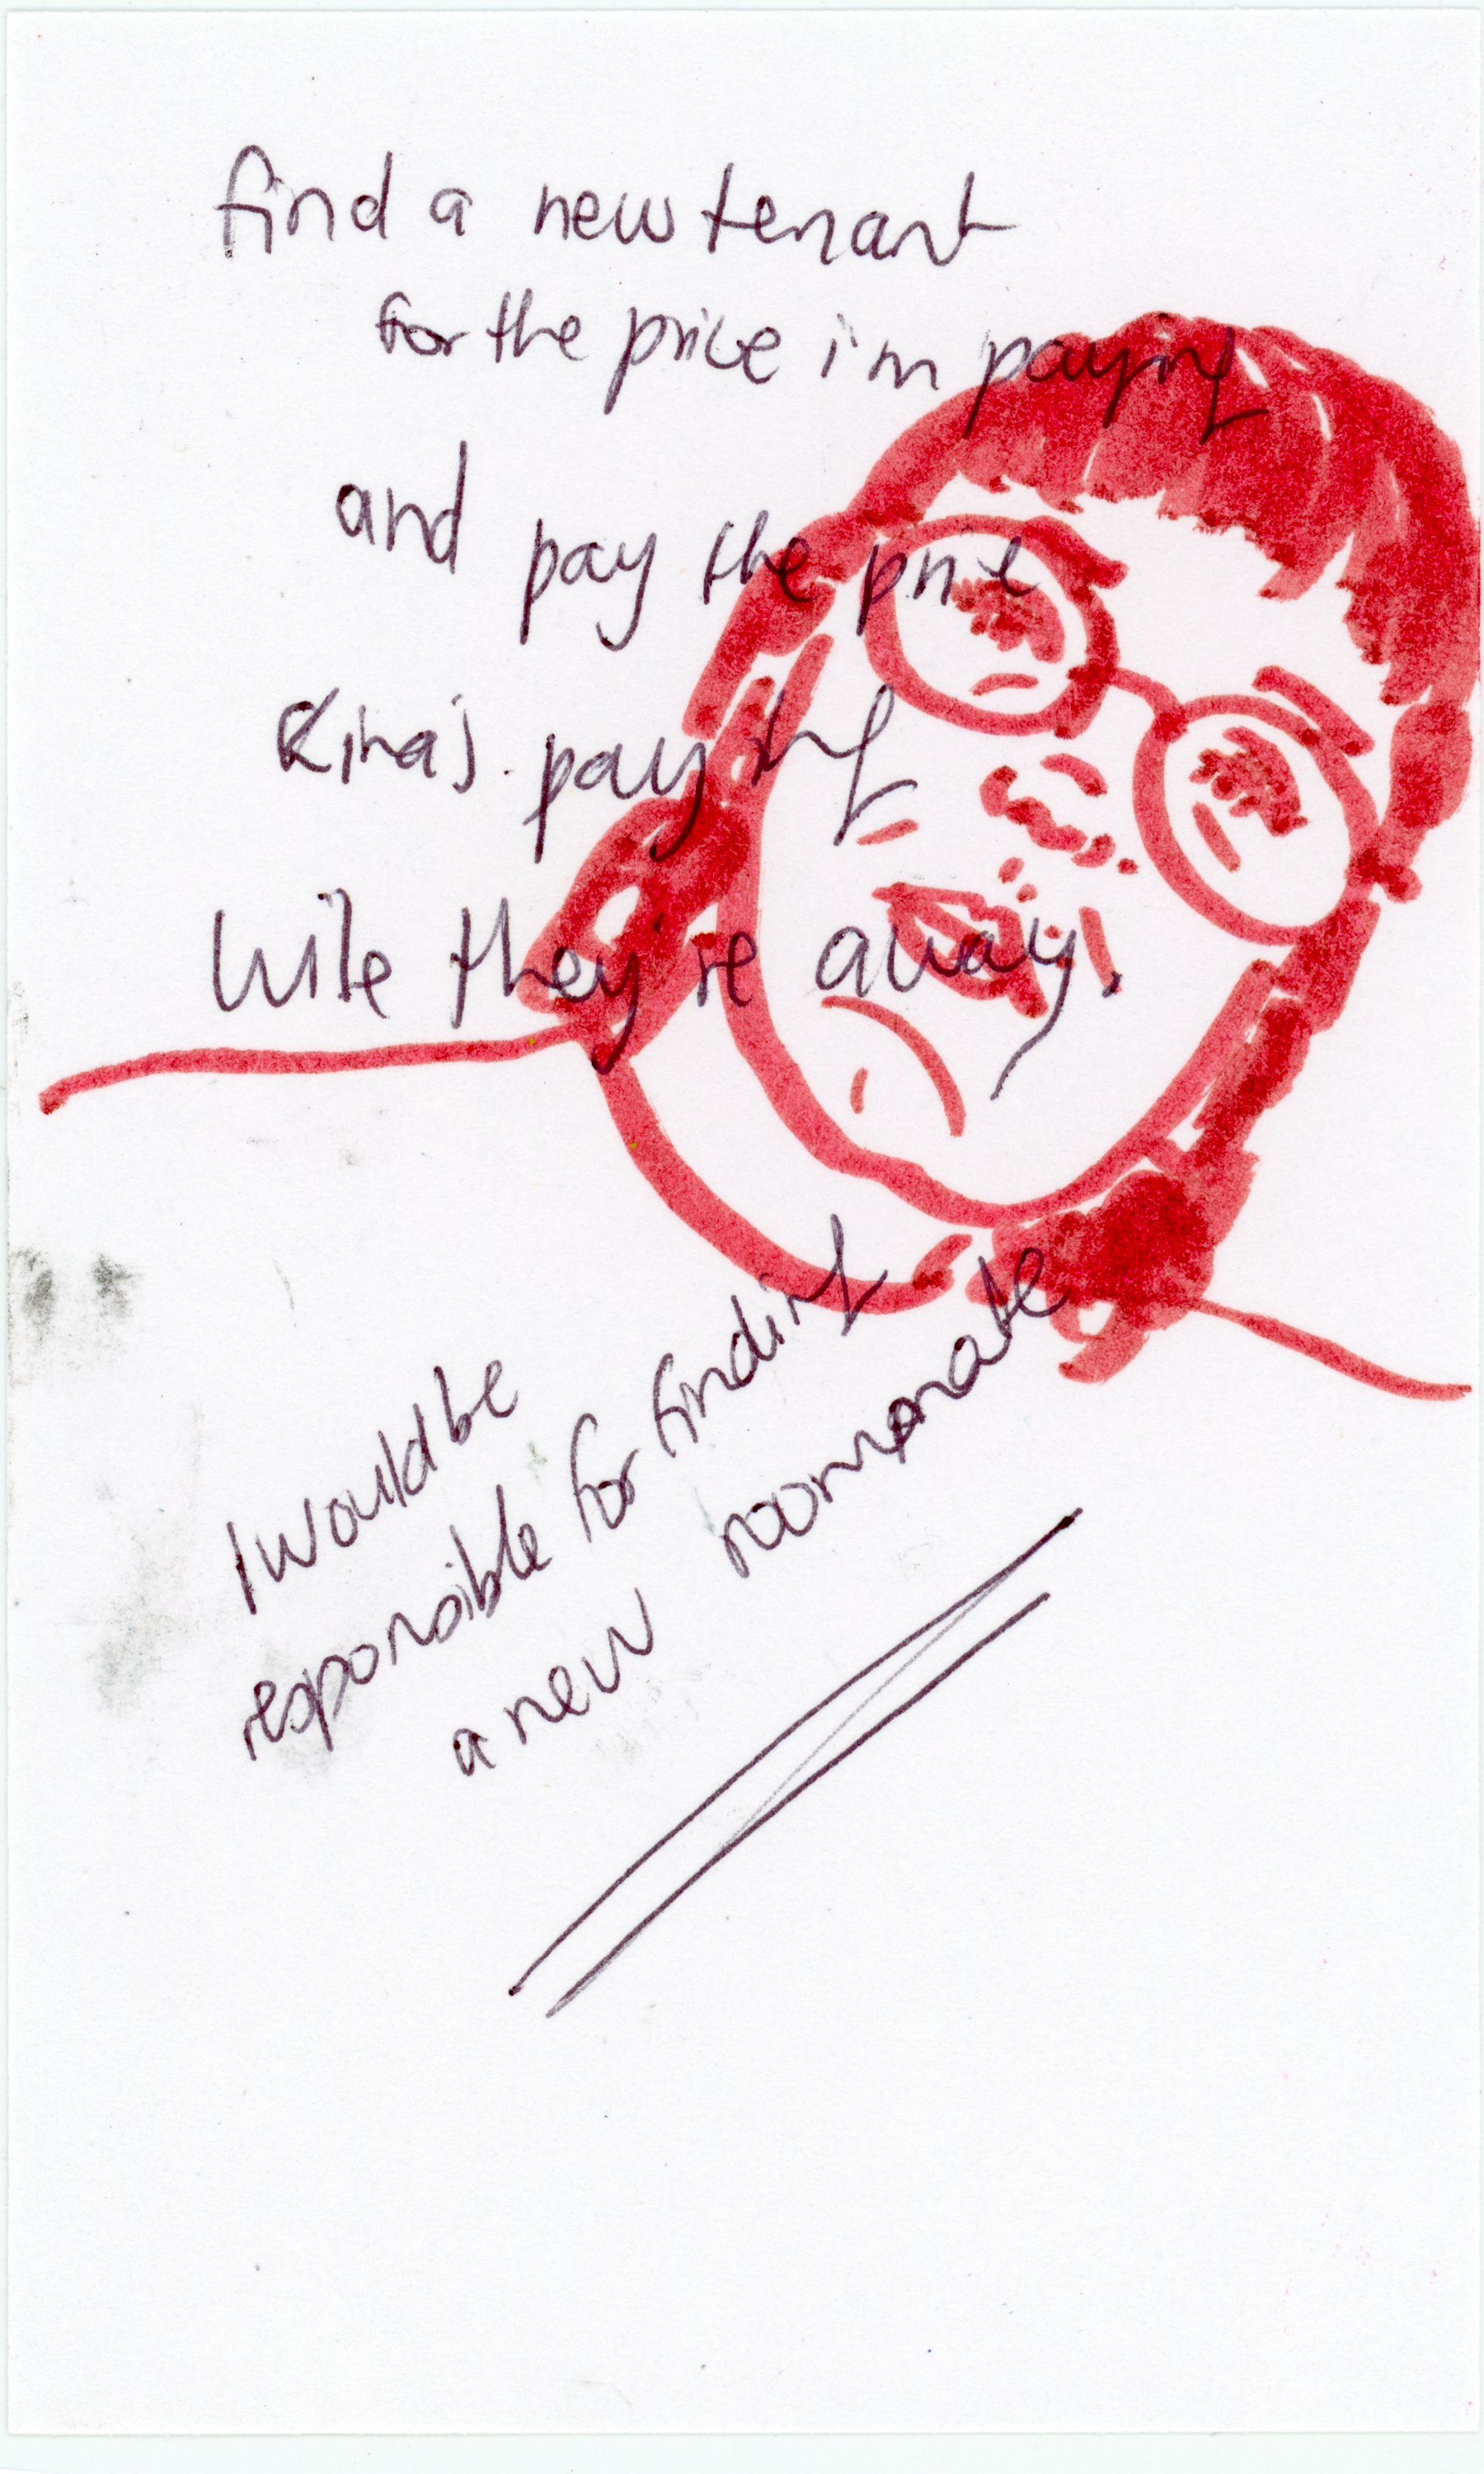 find a new tenant
for the price i'm paying
and pay the price
Kira's paying
while they're away.
I would be
responsible for finding
a new roommate